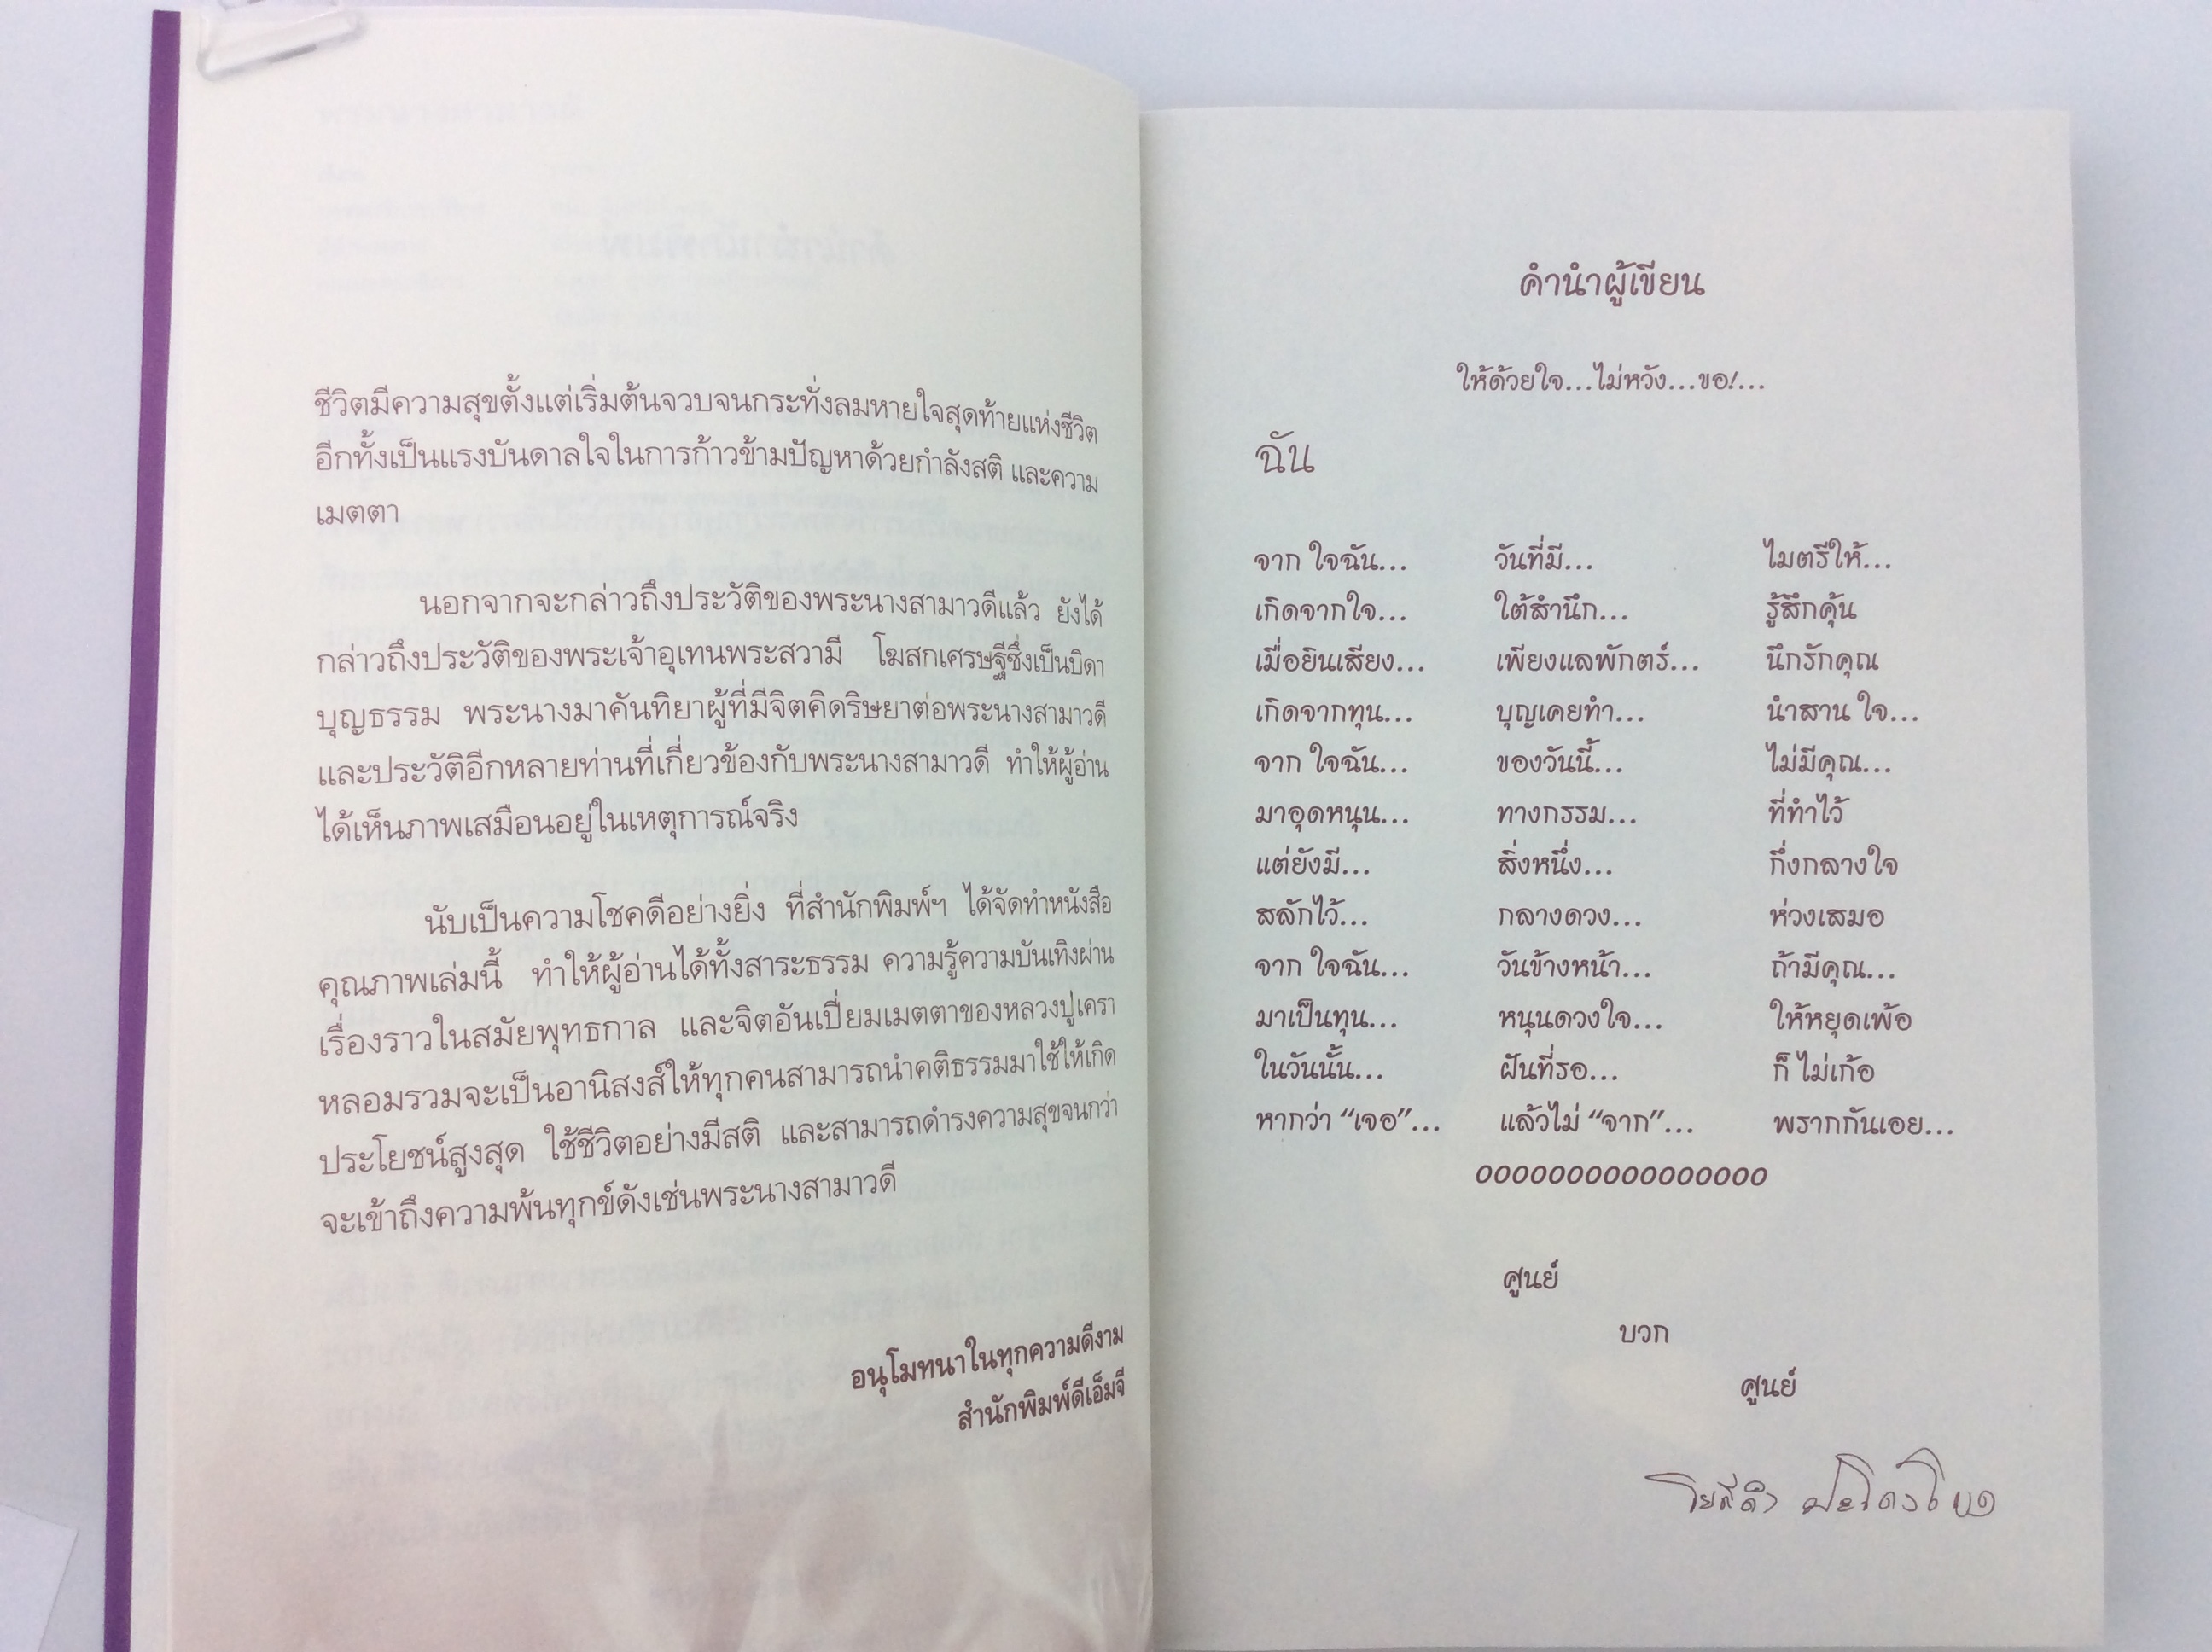 ชีวิตมีความสุขตั้งแต่เริ่มต้นจวบจนกระทั่งลมหายใจสุดท้ายแห่งชีวิต
อีกทั้งเป็นแรงบันดาลใจในการก้าวข้ามปัญหาด้วยกำลังสติ และความ
เมตตา
นอกจากจะกล่าวถึงประวัติของพระนางสามาวดีแล้ว ยังได้
กล่าวถึงประวัติของพระเจ้าอุเทนพระสวามี โฆสกเศรษฐีซึ่งเป็นบิดา
บุญธรรม พระนางมาคันทิยาผู้ที่มีจิตคิดริษยาต่อพระนางสามาวดี
และประวัติอีกหลายท่านที่เกี่ยวข้องกับพระนางสามาวดี ทำให้ผู้อ่าน
ได้เห็นภาพเสมือนอยู่ในเหตุการณ์จริง
นับเป็นความโชคดีอย่างยิ่ง ที่สำนักพิมพ์ฯ ได้จัดทำหนังสือ
คุณภาพเล่มนี้ ทำให้ผู้อ่านได้ทั้งสาระธรรม ความรู้ความบันเทิงผ่าน
เรื่องราวในสมัยพุทธกาล และจิตอันเปี่ยมเมตตาของหลวงปู่เครา
หลอมรวมจะเป็นอานิสงส์ให้ทุกคนสามารถนำคติธรรมมาใช้ให้เกิด
ประโยชน์สูงสุด ใช้ชีวิตอย่างมีสติ และสามารถดำรงความสุขจนกว่า
จะเข้าถึงความพ้นทุกข์ดังเช่นพระนางสามาวดี
อนุโมทนาในทุกความดีงาม
สำนักพิมพ์ดีเอ็มจี
คำนำผู้เขียน
ให้ด้วยใจ...ไม่หวัง...ขอ!...
ฉัน
จาก ใจฉัน... วันที่มี... ไมตรีให้...
เกิดจากใจ... ใต้สำนึก... รู้สึกคุ้น
เมื่อยินเสียง... เพียงแลพักตร์... นึกรักคุณ
เกิดจากทุน... บุญเคยทำ... นำสาน ใจ...
จาก ใจฉัน... ของวันนี้... ไม่มีคุณ...
มาอุดหนุน... ทางกรรม... ที่ทำไว้
แต่ยังมี... สิ่งหนึ่ง... กึ่งกลางใจ
สลักไว้... กลางดวง... ห่วงเสมอ
จาก ใจฉัน... วันข้างหน้า... ถ้ามีคุณ...
มาเป็นทุน... หนุนดวงใจ... ให้หยุดเพ้อ
ในวันนั้น... ฝันที่รอ... ก็ ไม่เก้อ
หากว่า “เจอ”... แล้วไม่ “จาก”... พรากกันเอย...
oooooooooooooooo
ศูนย์
บวก
ศูนย์